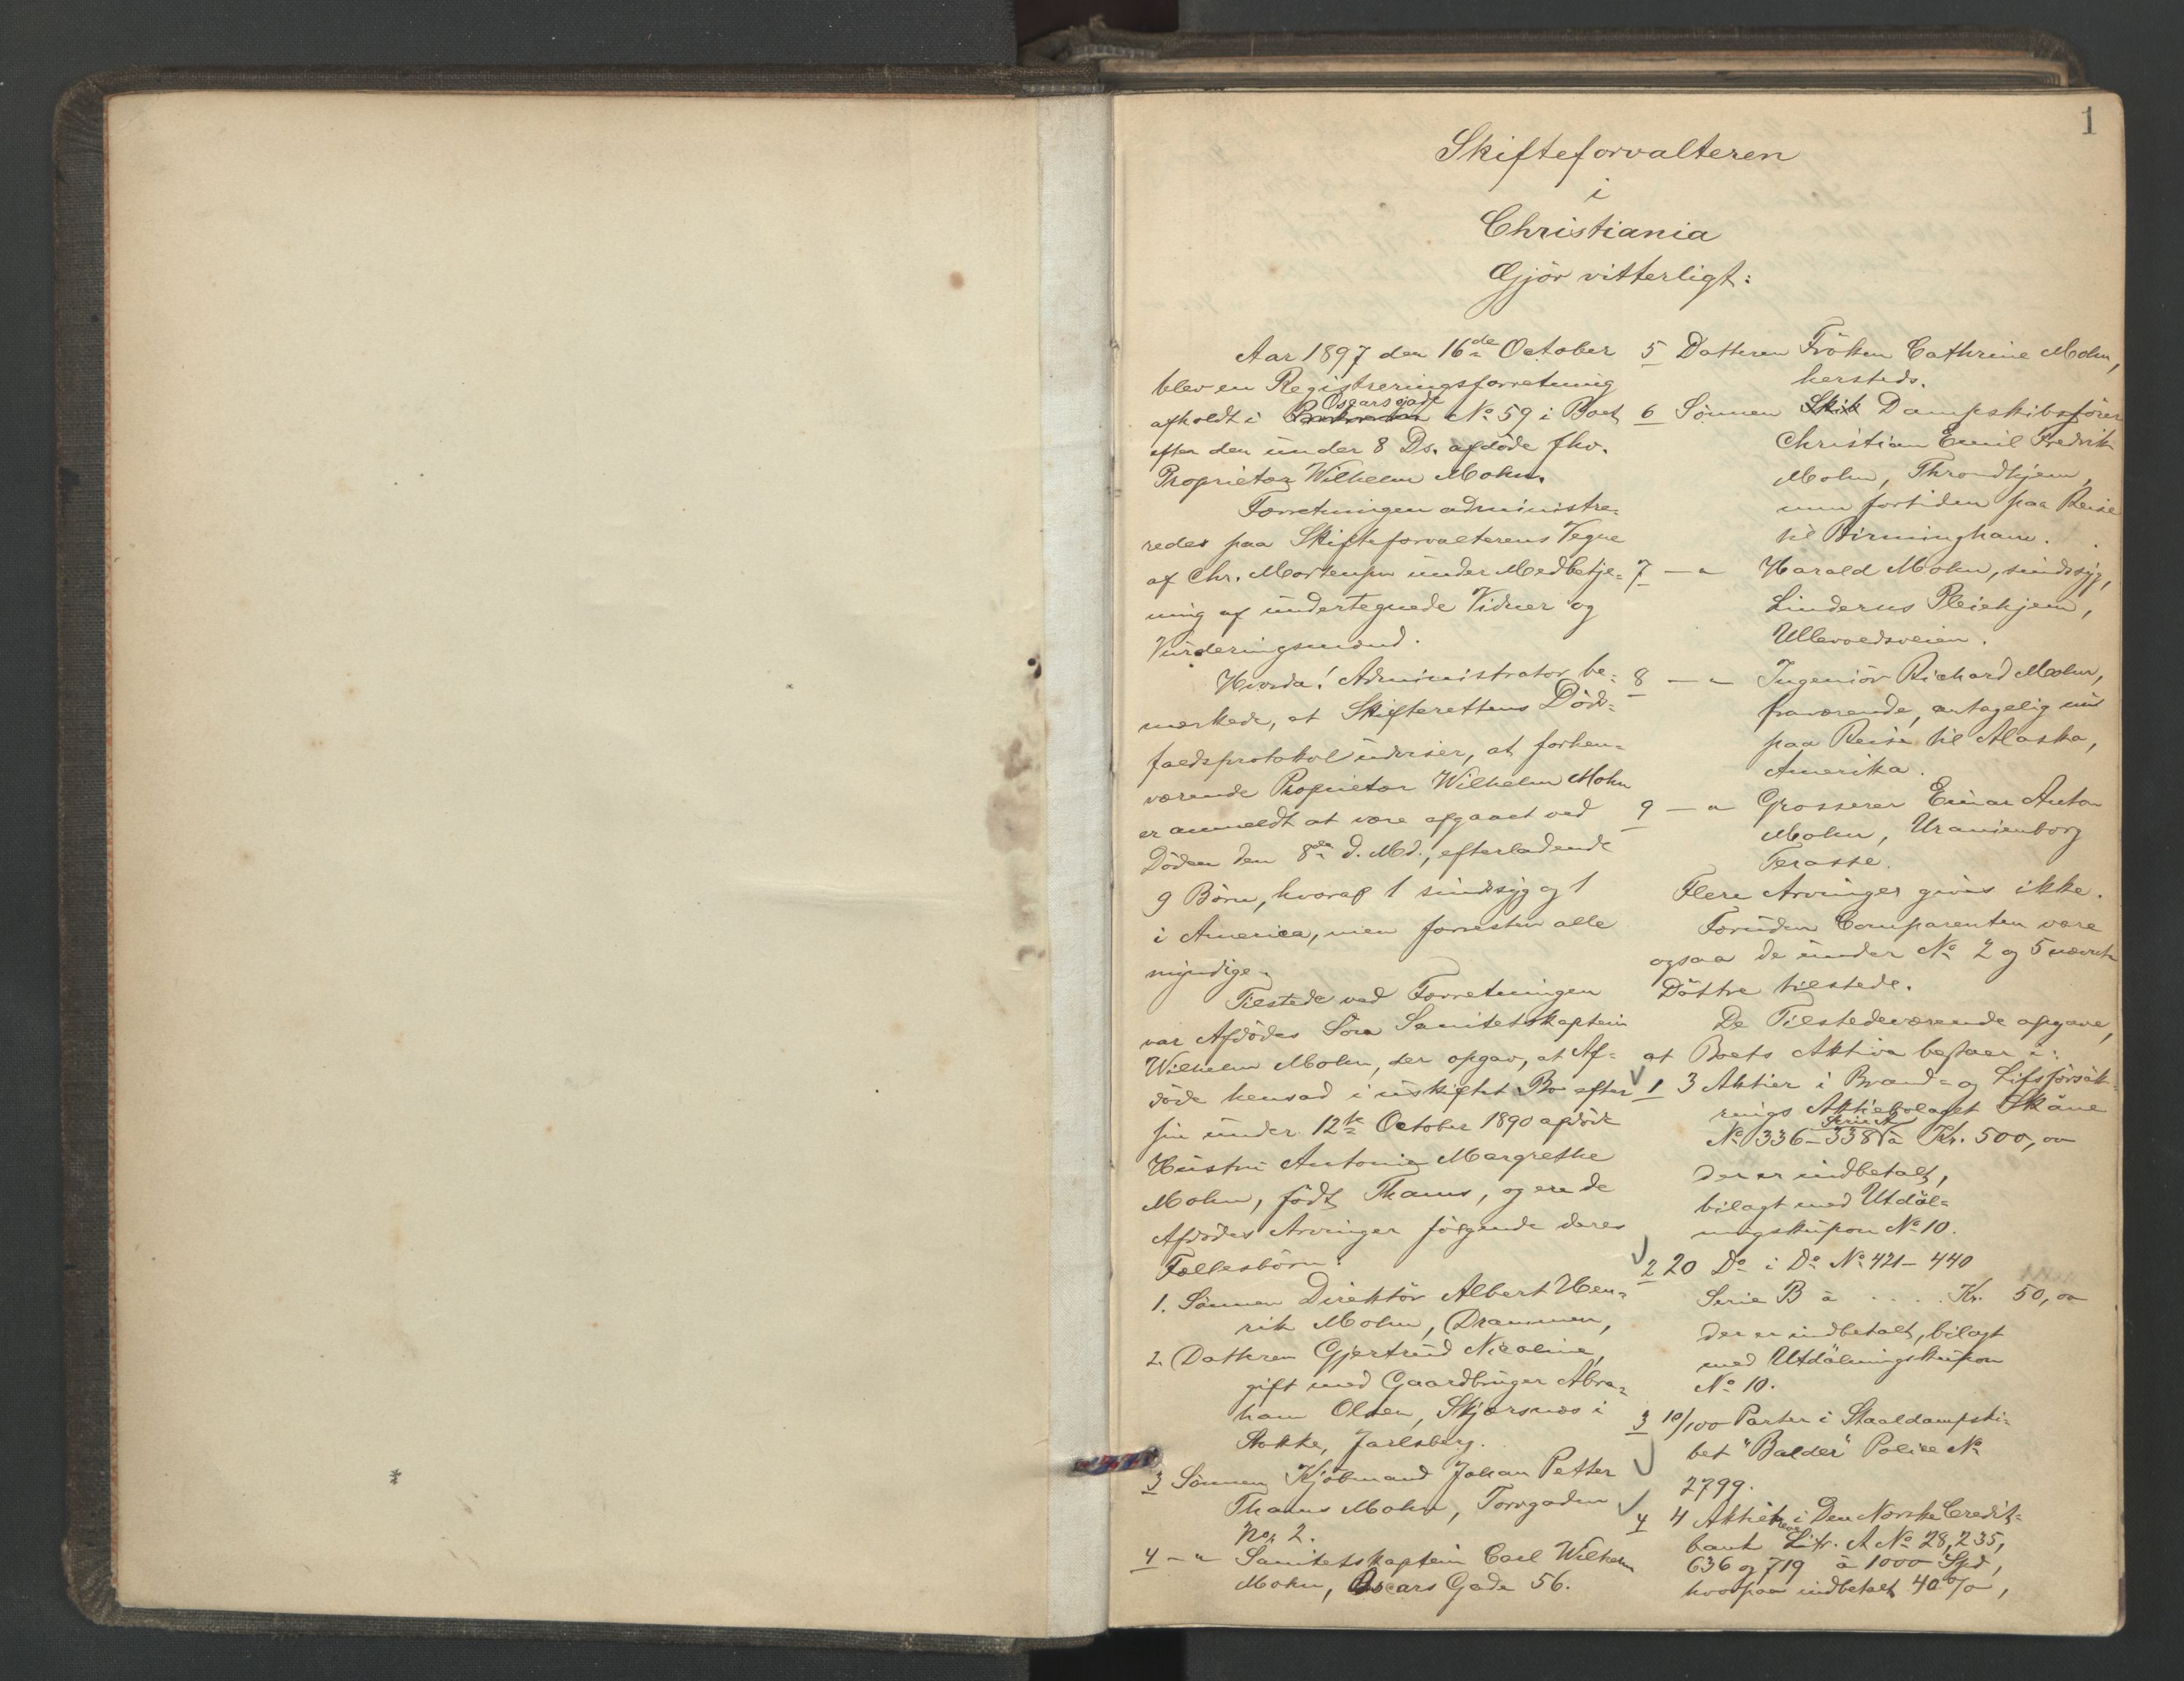 1
Skifteforvalteren
i
Christiania
Gjör vitterligt:
Aar 1897 den 16de October
blev en Registreringsforretning
afholdt i Oscarsgade No 59 i Boet
efter den under 8 Ds. afdöde fhv.
Proprietær Wilhelm Mohn.
Forretningen administre=
redes paa Skifteforvalterens Vegne
af Chr. Mortensen under Medbetje=
ning af undertegnede Vidner og
Vurderingsmænd.
Hvorda! Administrator be=
mærkede, at Skifterettens Döds=
faldsprotokol udviser, at forhen=
værende Proprietær Wilhelm Mohn
er anmeldt at være afgaaet ved
Döden den 8de d. Md., efterladende
9 Börn, hvoraf 1 sindssyg og 1
i America, men forresten alle
myndige.
Tilstede ved Forretningen
var Afdödes Sön Sanitetskaptein
Wilhelm Mohn, der opgav, at Af=
döde hensad i uskiftet Bo efter
sin under 12te October 1890 afdöde
Hustru Antonie Margrethe
Mohn, födt Thams, og ere de
Afdödes Arvinger fölgende deres
Fællesbörn:
1. Sönnen Direktör Albert Hen=
rik Mohn, Drammen,
2. Datteren Gjertrud Nicoline,
gift med Gaardbruger Abra=
ham Olsen, Skjærsnæs i
Stokke, Jarlsberg.
3 Sönnen Kjöbmand Johan Petter
Thams Mohn, Torvgaden
No. 2.
4 - " Sanitetskaptein Carl Wilhelm
Mohn, Oscars Gade 56.
5 Datteren Fröken Cathrine Mohn,
hersteds.
6 Sönnen Skib Dampskibsförer
Christian Emil Fredrik
Mohn, Throndhjem,
nu fortiden paa Reise
til Birmingham.
7 - " Harald Mohn, sindssyg,
Linderns Pleiehjem,
Ullevoldsveien.
8 - " Ingeniör Richard Mohn,
fraværende, antagelig nu
paa Reise til Alaska,
Amerika.
9 - " Grosserer Einar Anton
Mohn, Uranienborg
Terasse.
Flere Arvinger gives ikke.
Foruden Comparenten vare
ogsaa de under No 2 og 5 nævnte
Döttre tilstede.
De Tilstedeværende opgave,
at Boets Aktiva bestaar i:
1 3 Aktier i Brand- og Lifsförsäk=
rings Aktiebolaget Skåne
No 336-338 Serie A à Kr. 500,00
der er indbetalt,
bilagt med Utdäl=
ningskupon No 10.
2 20 Do i Do No 421-440
Serie B à . . . . Kr. 50,00
der er indbetalt, bilagt
med Utdälningskupon
No 10.
3 10/100 Parter i Staaldampski=
bet "Balder" Police No
2799.
4 4 Aktiebreve i Den Norske Credit=
bank Litr. A No 28, 235,
636 og 719 à 1000 Spd,
hvorpaa indbetalt 40 %,